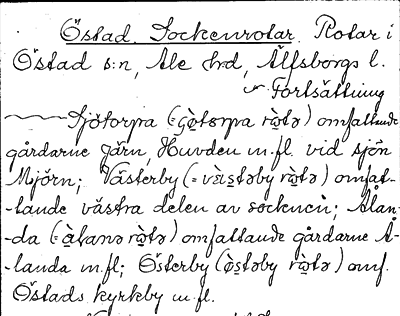 Östad. Sockenrotar. Rotar i
Östad s:n, Ale hrd, Älfsborgs l.
Fortsättning
Sjötorpa ( rò̱tə) omfattande
gårdarne Järn, Huvden m.fl. vid sjön
Mjörn; Västerby ( rò̱tə) omfat-
-tande västra delen av socknen; Ålan-
-da ( rò̱tə) omfattande gårdarne Å-
-landa m.fl; Österby ( rò̱tə) omf.
Östads kyrkby m.fl.